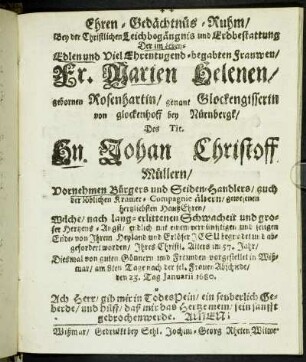 Ehren-Gedächtnüs-Ruhm/
Bey der Christlichen Leichbegängnis und Erdbestattung
Der im leben
Edlen und Viel Ehrentugend-begabten Frauwen/
Fr. Marien Helenen/
gebornen Rosenhartin/ genant Glockengisserin
von glockenhoff bey Nürnbergk/
Des Tit.
Hn. Johan Christoff
Müllern/
Vornehmen Bürgers und Seiden-Handlers/ auch
der löblichen Kramer-Compagnie ältern/ gewesenen
hertzliebsten HaußEhren/
Wälche/ nach lang-erlittenen Schwacheit und gros-
ser Hertzens-Angst/ endlich mit einem vernünftigen und seeligen
Ende von Ihrem Heyland und Erlöser JESU begnadet und ab-
gefordert worden/ Ihres Christl. Alters im 57. Jahr/
Diesmal von guten Gönnern und Freunden vorgestellet in Wiß-
mar/ am 8ten Tage nach der sel. Frauen Abschiede/
den 23. Tag Januarii 1680.
Ach Herr/ gib mir in TodesPein/ ein seuberlich Ge-
berde/ und hilff/ daß mir das Hertze mein/ fein sanfft
gebrochen werde. AMEN!
Wißmar/ Gedruckt bey Sehl. Jochim-Georg Rheten Witwe.